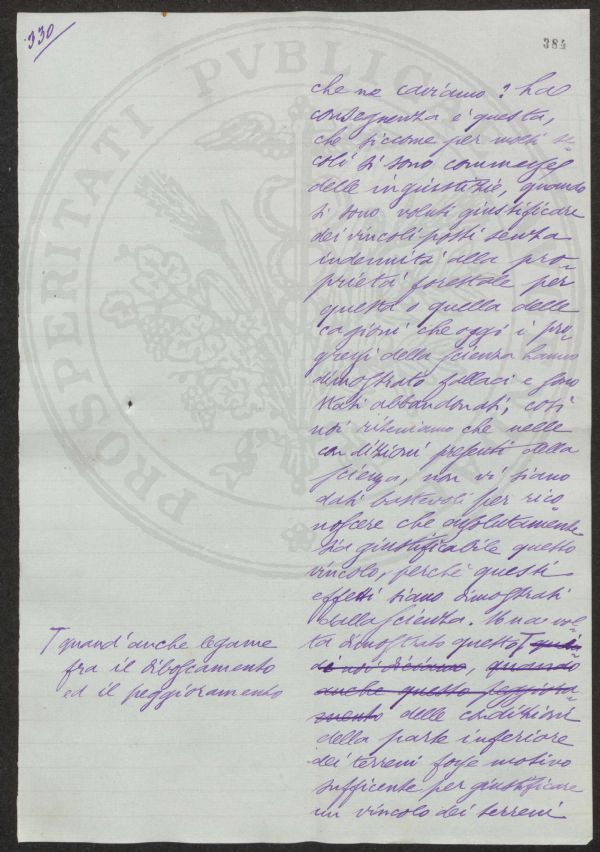 330
384
PROSPERITATI PVBLICAE
che ne caviamo? La
conseguenza è questa,
che siccome per molti se=
coli si sono commesse
delle ingiustizie, quando
si sono voluti giustificare
dei vincoli posti senza
indennità alla pro=
prietà forestale per
questa o quella delle
cagioni che oggi i pro=
gressi della scienza hanno
dimostrato fallaci e sono
stati abbandonati, così
noi riteniamo che nelle
condizioni presenti della
scienza, non vi siano
dati bastevoli per rico
noscere che assolutamente
sia giustificabile questo
vincolo, perchè questi
effetti siano dimostrati
dalla scienza. Una vol=
ta dimostrato questo T
di noi diciamo, quando
anche questo peggiora=
mento delle condizioni
della parte inferiore
dei terreni fosse motivo
sufficente per giustificare
un vincolo dei terreni
T quand'anche legame
fra il disboscamento
ed il peggioramento